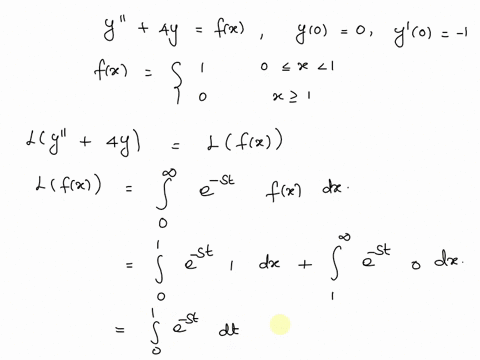 y'' + 4y = f(x) , y(0) = 0, y'(0) = -1
f(x) = { 1 0 ≤ x < 1
0 x ≥ 1
L(y'' + 4y) = L(f(x))
L(f(x)) = ∫₀^∞ e^{-st} f(x) dx.
= ∫₀^1 e^{-st} 1 dx + ∫₁^∞ e^{-st} 0 dx.
= ∫₀^1 e^{-st} dt